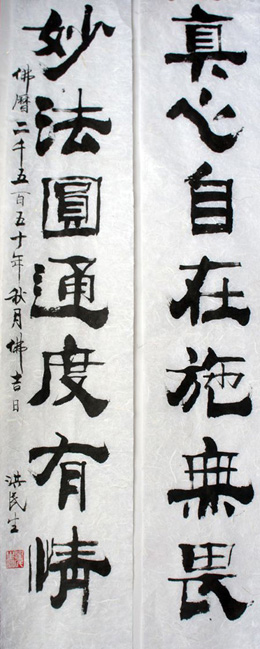 真心自在施無畏
妙法圓通度有情
佛曆二千五百五十年秋月佛吉日
洪民生